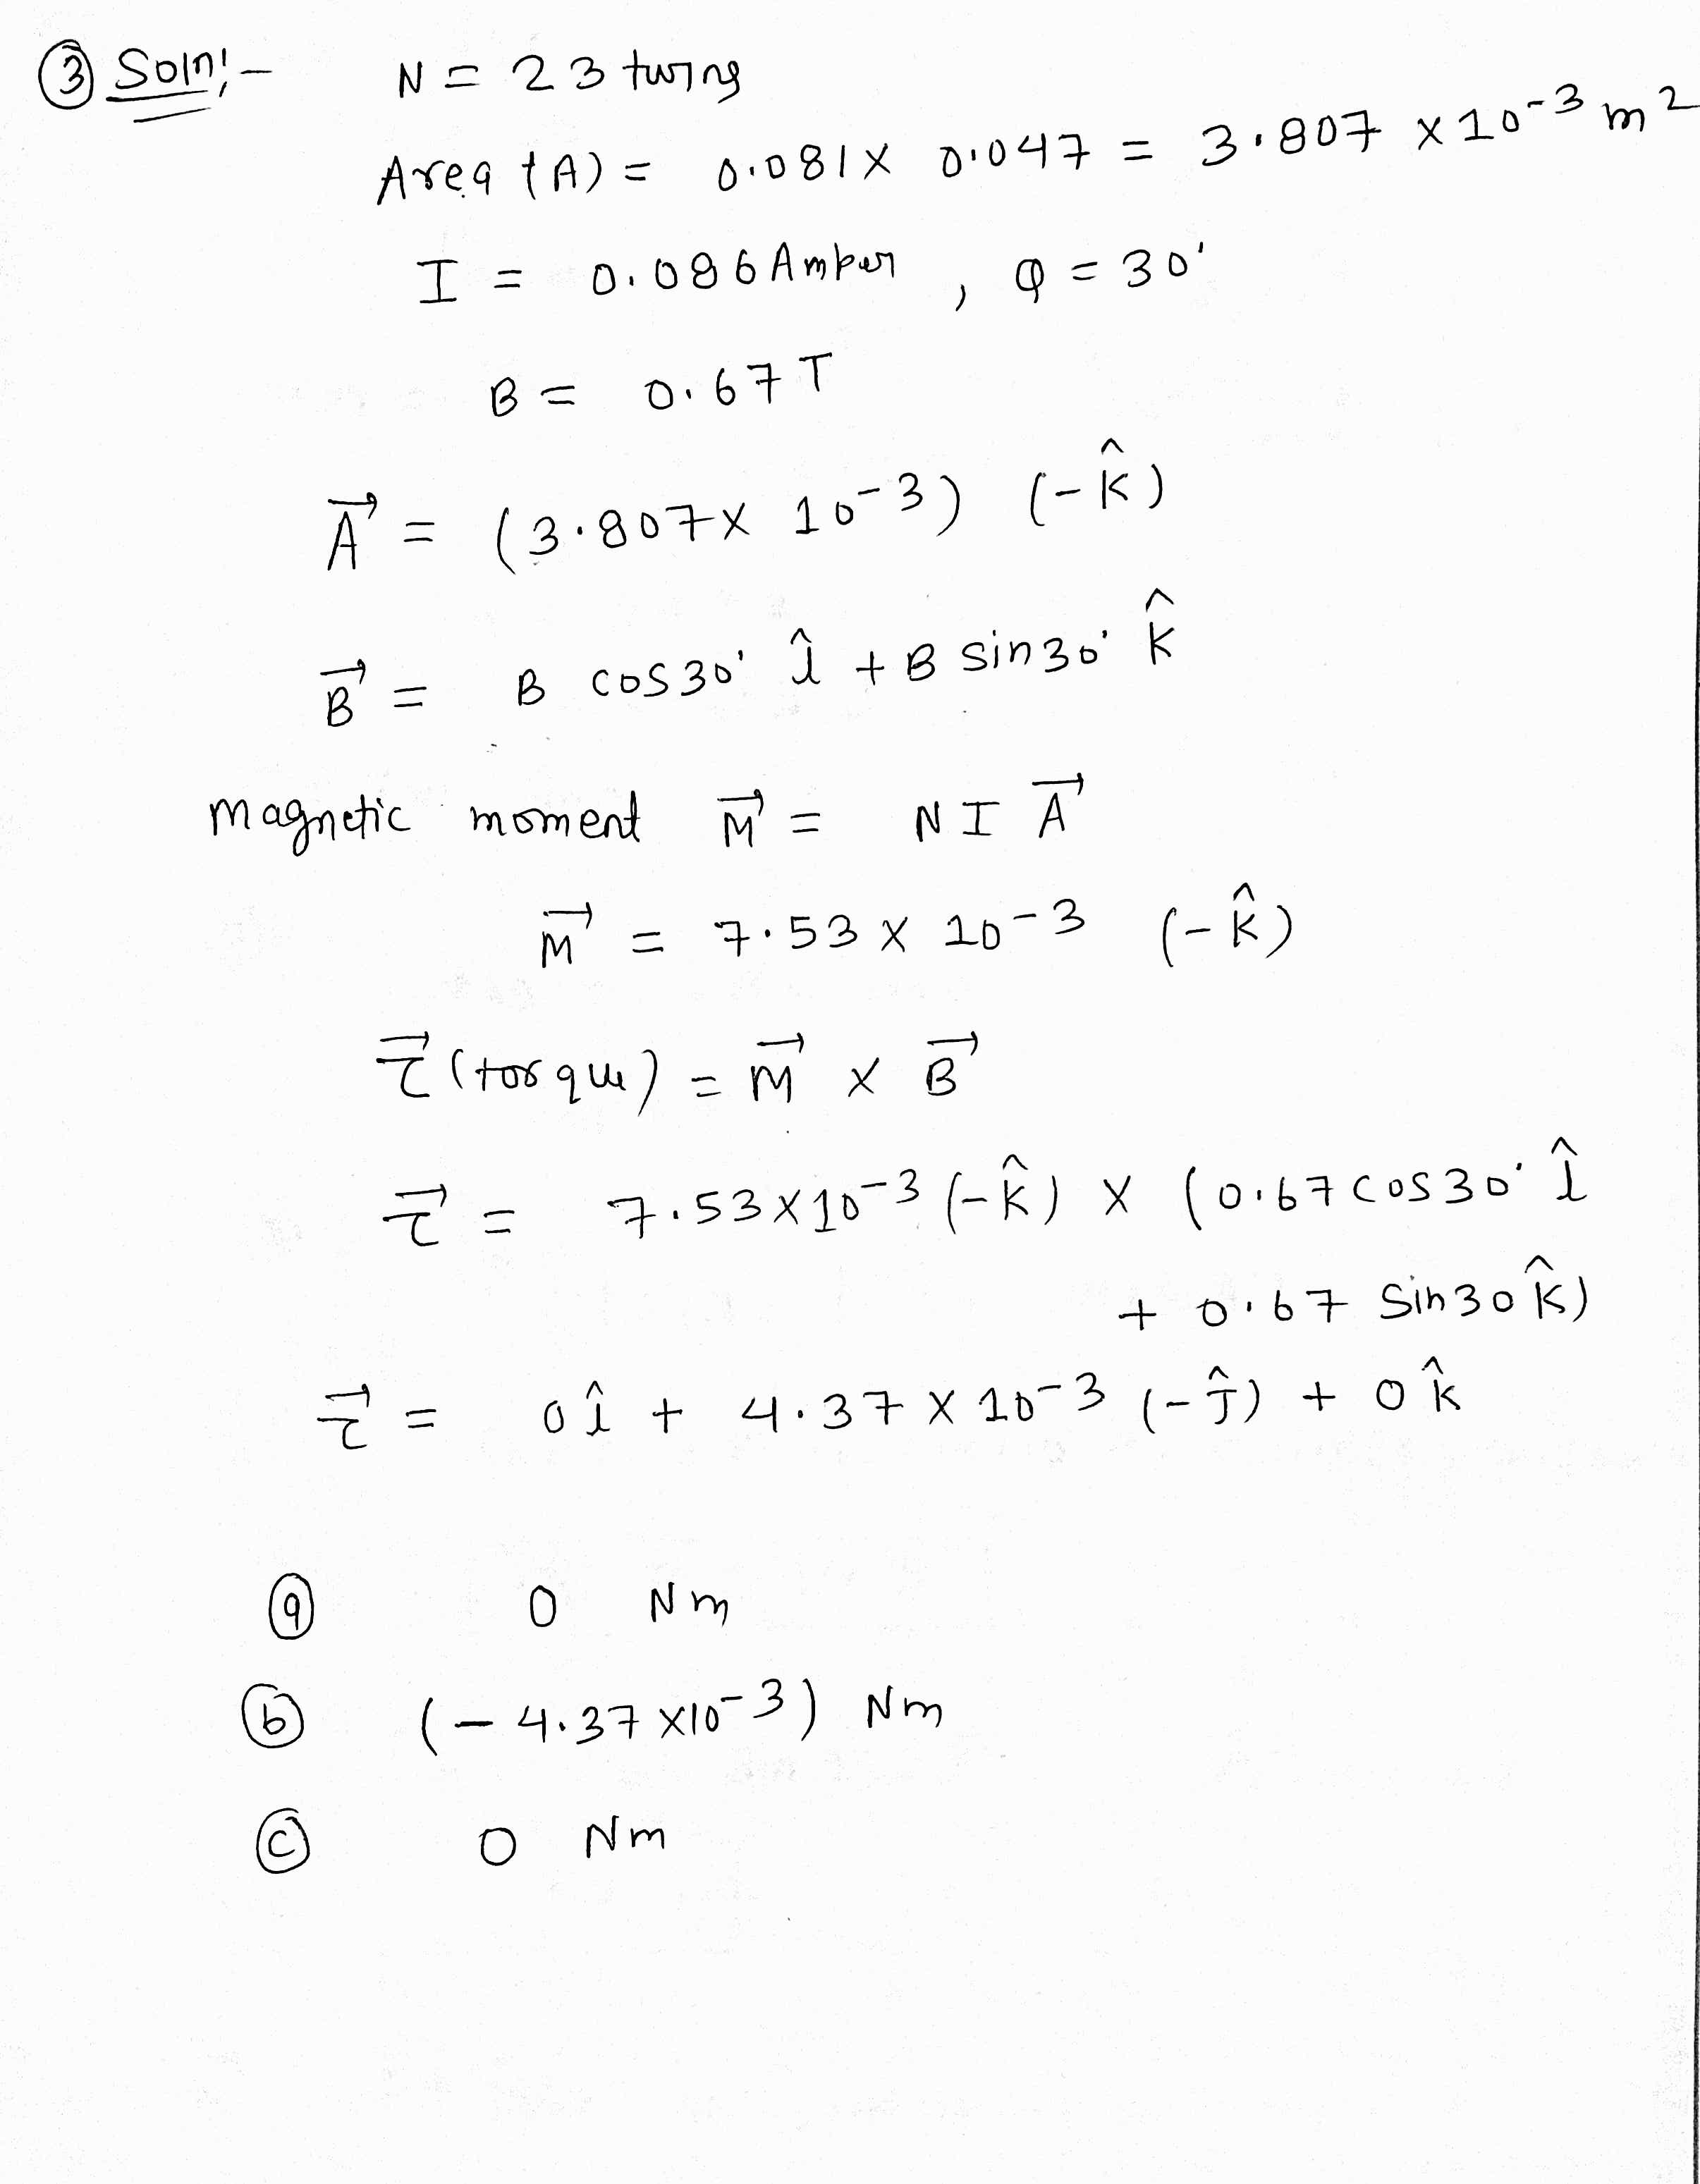 ③ Soln:- N = 23 turns
Area (A) = 0.081 × 0.047 = 3.807 × 10⁻³ m²
I = 0.086 Amper , Q = 30°
B = 0.67 T
A⃗ = (3.807 × 10⁻³) (-k̂)
B⃗ = B cos30° î + B sin30° k̂
magnetic moment M⃗ = N I A⃗
M⃗ = 7.53 × 10⁻³ (-k̂)
τ⃗ (torque) = M⃗ × B⃗
τ⃗ = 7.53×10⁻³ (-k̂) × (0.67 cos30° î
+ 0.67 sin30 k̂)
τ⃗ = 0 î + 4.37 × 10⁻³ (-ĵ) + 0 k̂
ⓐ 0 Nm
ⓑ (-4.37 ×10⁻³) Nm
ⓒ 0 Nm